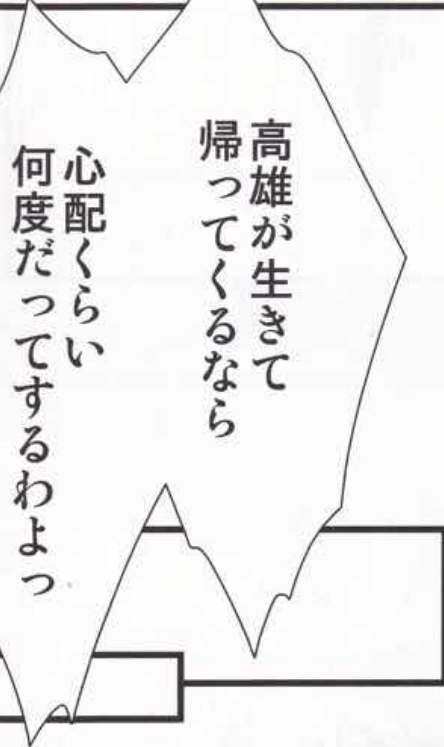 高雄が生きて
帰ってくるなら
心配くらい
何度だってするわよっ